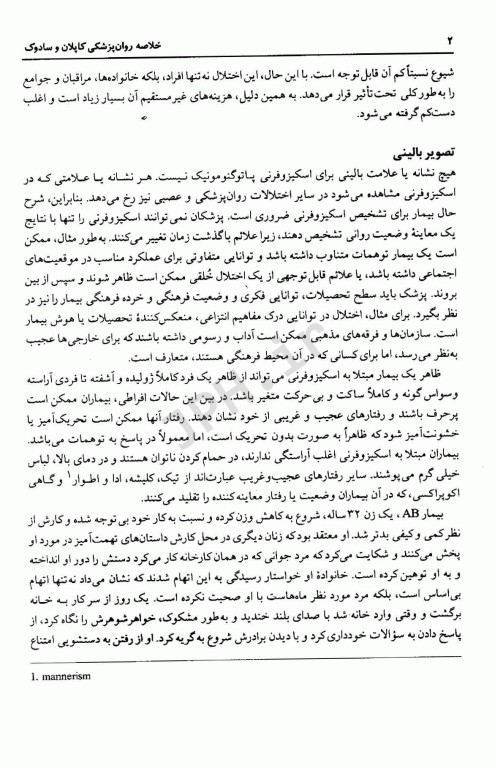 ۲ خلاصه روان‌پزشکی کاپلان و سادوک
شیوع نسبتاً کم آن قابل توجه است. با این حال، این اختلال نه تنها افراد، بلکه خانواده‌ها، مراقبان و جوامع
را به‌طور کلی تحت تأثیر قرار می‌دهد. به همین دلیل، هزینه‌های غیرمستقیم آن بسیار زیاد است و اغلب
دست‌کم گرفته می‌شود.
تصویر بالینی
هیچ نشانه یا علامت بالینی برای اسکیزوفرنی پاتوگنومونیک نیست. هر نشانه یا علامتی که در
اسکیزوفرنی مشاهده می‌شود در سایر اختلالات روان‌پزشکی و عصبی نیز رخ می‌دهد. بنابراین، شرح
حال بیمار برای تشخیص اسکیزوفرنی ضروری است. پزشکان نمی‌توانند اسکیزوفرنی را تنها با نتایج
یک معاینهٔ وضعیت روانی تشخیص دهند، زیرا علائم با گذشت زمان تغییر می‌کنند. به‌طور مثال، ممکن
است یک بیمار توهمات متناوب داشته باشد و توانایی متفاوتی برای عملکرد مناسب در موقعیت‌های
اجتماعی داشته باشد، یا علائم قابل توجهی از یک اختلال خُلقی ممکن است ظاهر شوند و سپس از بین
بروند. پزشک باید سطح تحصیلات، توانایی فکری و وضعیت فرهنگی و خرده فرهنگی بیمار را نیز در
نظر بگیرد. برای مثال، اختلال در توانایی درک مفاهیم انتزاعی، منعکس‌کنندهٔ تحصیلات یا هوش بیمار
است. سازمان‌ها و فرقه‌های مذهبی ممکن است آداب و رسومی داشته باشند که برای خارجی‌ها عجیب
به‌نظر می‌رسد، اما برای کسانی که در آن محیط فرهنگی هستند، متعارف است.
ظاهر یک بیمار مبتلا به اسکیزوفرنی می‌تواند از ظاهر یک فرد کاملاً ژولیده و آشفته تا فردی آراسته
وسواس گونه و کاملاً ساکت و بی‌حرکت متغیر باشد. در بین این حالات افراطی، بیماران ممکن است
پرحرف باشند و رفتارهای عجیب و غریبی از خود نشان دهند. رفتار آنها ممکن است تحریک‌آمیز یا
خشونت‌آمیز شود که ظاهراً به صورت بدون تحریک است، اما معمولاً در پاسخ به توهمات می‌باشد.
بیماران مبتلا به اسکیزوفرنی اغلب آراستگی ندارند، در حمام کردن ناتوان هستند و در دمای بالا، لباس
خیلی گرم می‌پوشند. سایر رفتارهای عجیب‌وغریب عبارت‌اند از تیک، کلیشه، ادا و اطوار۱ و گاهی
اکوپراکسی، که در آن بیماران وضعیت یا رفتار معاینه‌کننده را تقلید می‌کنند.
بیمار AB، یک زن ۳۲ساله، شروع به کاهش وزن کرده و نسبت به کار خود بی‌توجه شده و کارش از
نظر کمی و کیفی بدتر شد. او معتقد بود که زنان دیگری در محل کارش داستان‌های تهمت‌آمیز در مورد او
پخش می‌کنند و شکایت می‌کرد که مرد جوانی که در همان کارخانه کار می‌کرد دستش را دور او انداخته
و به او توهین کرده است. خانوادهٔ او خواستار رسیدگی به این اتهام شدند که نشان می‌داد نه‌تنها اتهام
بی‌اساس است، بلکه مرد مورد نظر ماه‌هاست با او صحبت نکرده است. یک روز از سر کار به خانه
برگشت و وقتی وارد خانه شد با صدای بلند خندید و به‌طور مشکوک، خواهرشوهرش را نگاه کرد، از
پاسخ دادن به سؤالات خودداری کرد و با دیدن برادرش شروع به گریه کرد. او از رفتن به دستشویی امتناع
1. mannerism